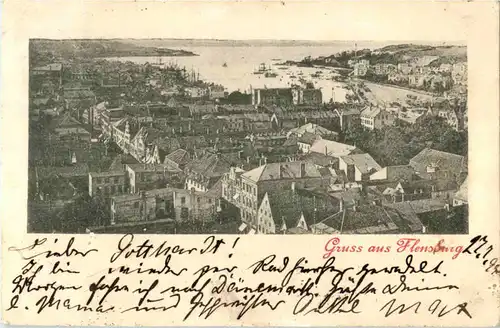 Gruss aus Flensburg
Lieber Gotthardt!
Ich bin wieder per Rad hierher geradelt.
Morgen fahre ich nach Dänemark. Grüße Deine
l. Mama und Geschwister Onkel Max